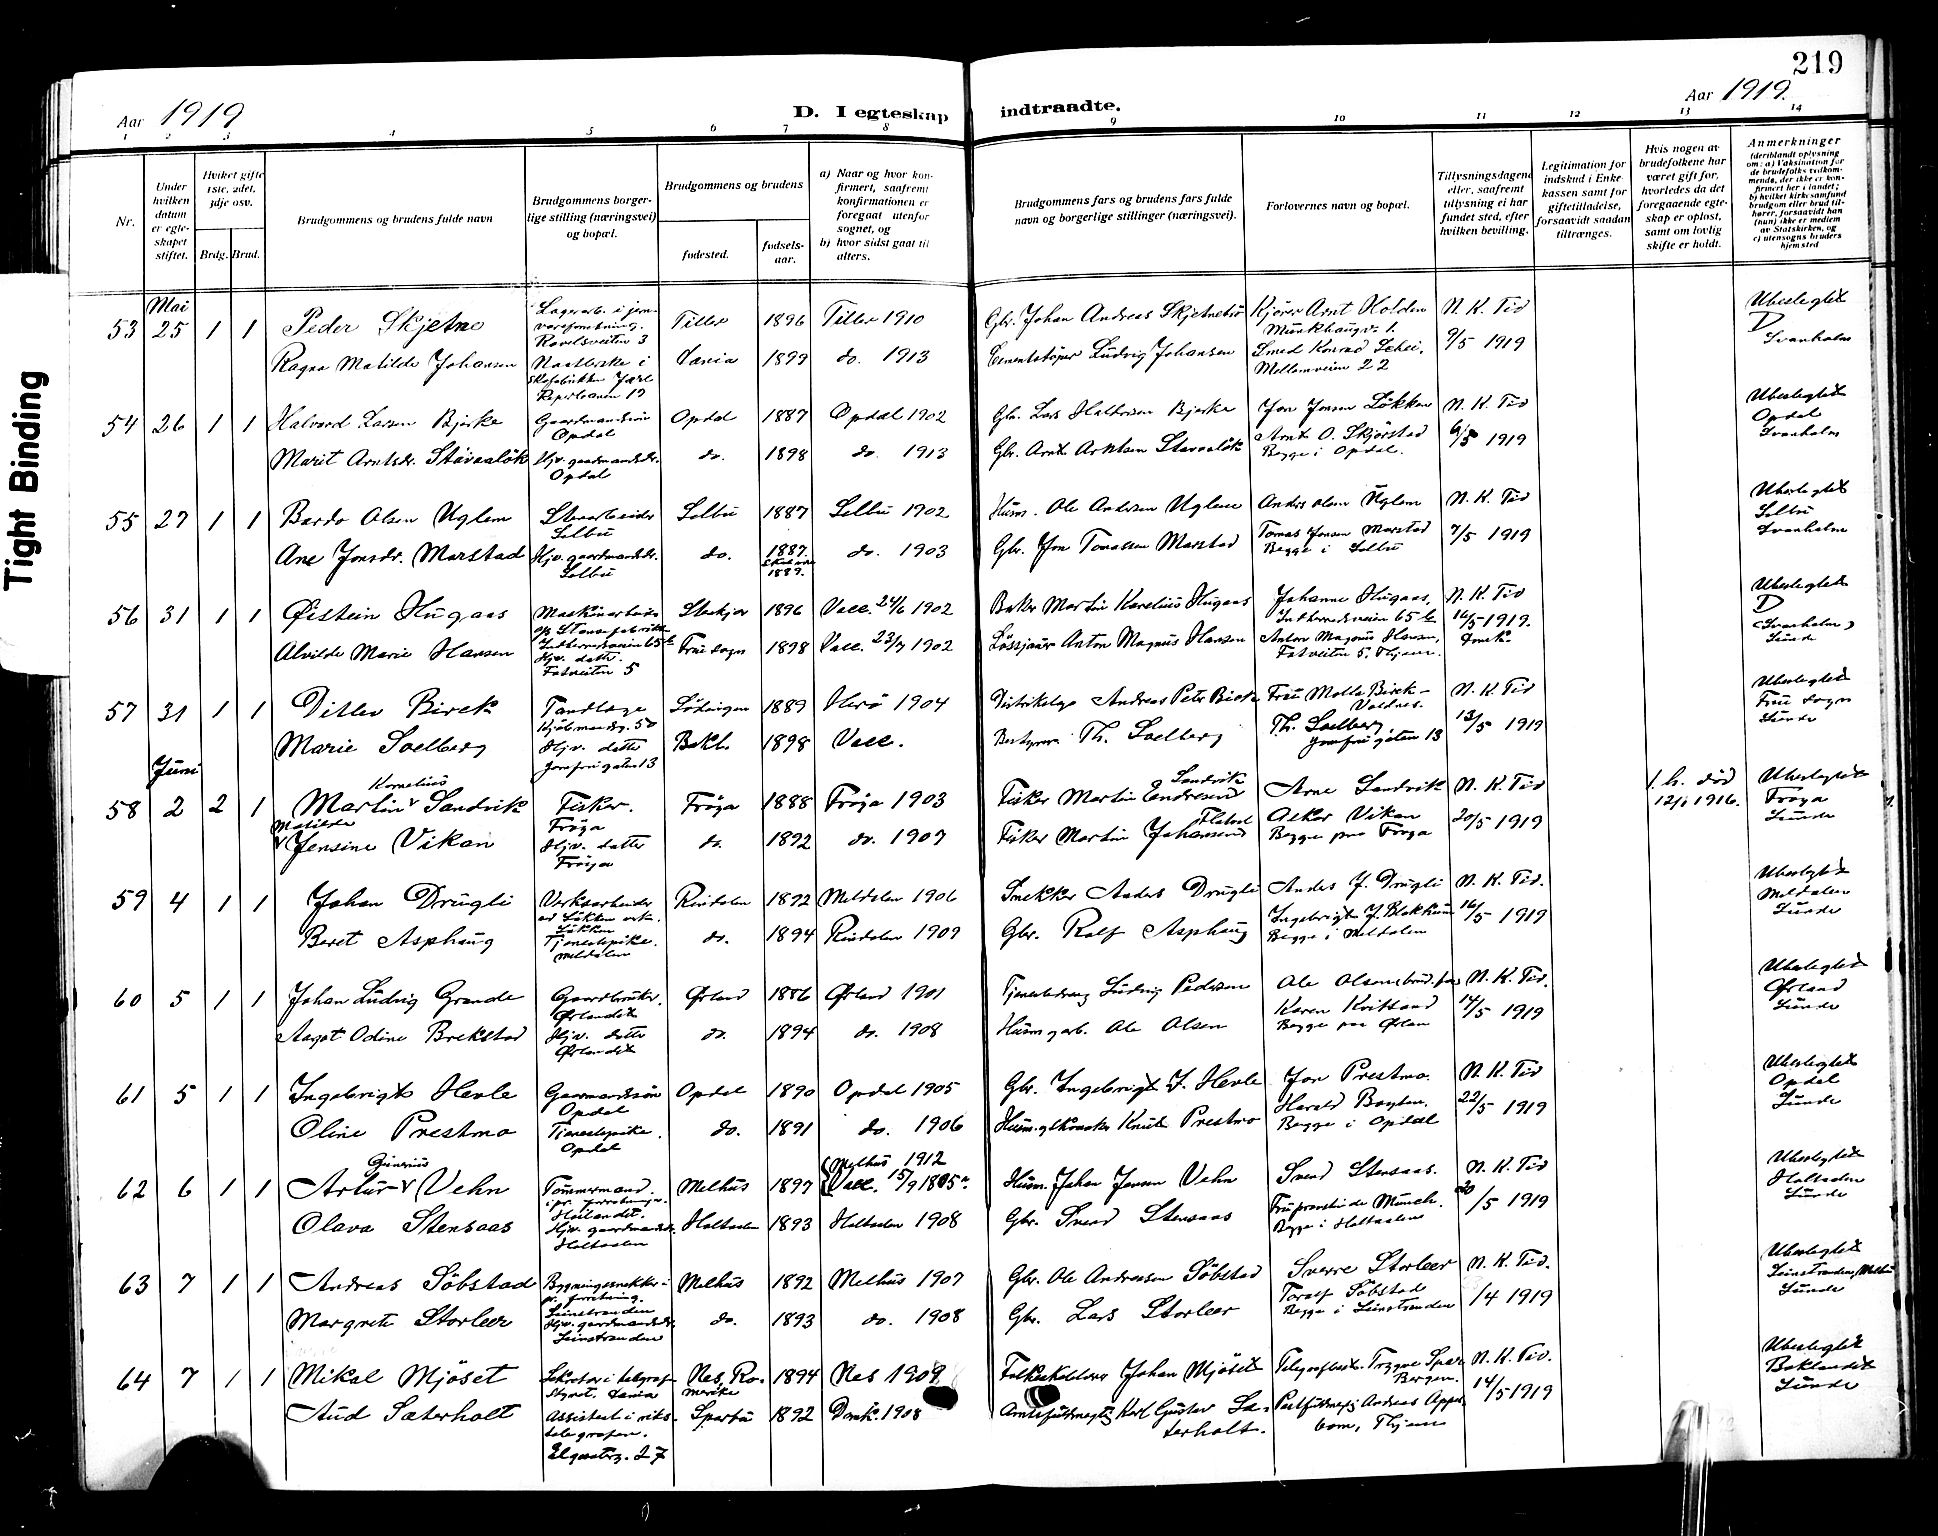 219
Tight Binding
Aar 1919
D. I egteskap indtraadte.
Aar 1919.
1 2 3 4 5 6 7 8 9 10 11 12 13 14
Nr.
Under hvilken datum er egteskapet stiftet.
Hvilket gifte 1ste, 2det, 3dje osv.
Brdg. Brud.
Brudgommens og brudens fulde navn
Brudgommens borgerlige stilling (næringsvei) og bopæl.
Brudgommens og brudens
fødested.
fødselsaar.
a) Naar og hvor konfirmert, saafremt konfirmationen er foregaat utenfor sognet, og
b) hvor sidst gaat til alters.
Brudgommens fars og brudens fars fulde navn og borgerlige stillinger (næringsvei).
Forlovernes navn og bopæl.
Tillysningsdagene eller, saafremt tillysning ei har fundet sted, efter hvilken bevilling.
Legitimation for indskud i Enkekassen samt for giftetilladelse, forsaavidt saadan tiltrænges.
Hvis nogen av brudefolkene har været gift før, hvorledes da det foregaaende egteskap er opløst, samt om lovlig skifte er holdt.
Anmerkninger
(deriblandt oplysning om: a) Vaksination for de brudefolks vedkommende, der ikke er konfirmert her i landet; b) hvilket kirkesamfund brudgom eller brud tilhører, forsaavidt han (hun) ikke er medlem av Statskirken, og c) utensogns bruders hjemsted
Mai
53 25 1 1 Peder Skjetne Tiller 1896 Tiller 1910 Gbr. Johan Andreas Skjetnetrø Kjører Arnt Holden N. K. Tid Ubeslegtet
Munkhaugv. 1. D
Ravelsveiten 3 9/5 1919 Svanholm
Ragna Matilde Johansen Vænia 1899 do. 1913 Cementstøper Ludvig Johansen Smed Konrad Schei,
Mellemveien 22
54 26 1 1 Halvord Larsen Bjerke Gaardmandssøn Opdal 1887 Opdal 1902 Gbr. Lars Halvorsen Bjerke Jon Jonsen Løkken N. K. Tid Ubeslegtet
Opdal Opdal
Marit Arntsdr. Stavaaløk Hjv. gaardmandsdr. do. 1898 do. 1913 Gbr. Arnt Arntsen Stavaaløk Arnt O. Skjørstad 9/5 1919 Svanholm
Opdal Begge i Opdal.
55 27 1 1 Bardo Olsen Uglem Selbu 1887 Selbu 1902 Husm. Ole Andersen Uglem Anders Olsen Uglem N. K. Tid Ubeslegtet
Selbu Selbu
Ane Jonsdr. Marstad Hjv. gaardmandsdr. do. 1887. do. 1903 Gbr. Jon Tomassen Marstad Tomas Jonsen Marstad 7/5 1919 Svanholm
Selbu 1889. Begge i Selbu
56 31 1 1 Øistein Hugaas 1896 Vacc. 24/6 1902 Baker Martin Karelius Hugaas Johanne Hugaas, N. K. Tid Ubeslegtet
D
16/5 1919.
Alvilde Marie Hansen Hjv. datter. Frue sogn 1898 Vacc. 23/7 1902 Løssjauer Anton Magnus Hansen Anton Magnus Hansen,
Fatveiten 5 Fatveiten 5. Thjem. Sunde
57 31 1 1 Ditlev Birck Tandlæge 1889 Herø 1904 Distriktslæge Andreas Peter Birck Fru Molla Birck N. K. Tid Ubeslegtet
Kjøbmandsg. 50 Frue sogn
Marie Soelberg Hjv. datter Bakl. 1898 Vacc. Bestyrer Th. Soelberg Th. Soelberg 13/5 1919 Sunde
Jomfrugaten 13 Jomfrugaten 13
Juni
58 2 2 1 Martin Kornelius Sandvik Fisker. Frøya 1888 Frøya 1903 Fisker Martin Endresen Sandvik Arne Sandvik N. K. Tid 1. h. død 12/1 1916. Ubeslegtet
Frøya Frøya
Matilde Jensine Vikan Hjv. datter do. 1892 do. 1907 Fisker Martin Johansen Oskar Vikan 20/5 1919 Sunde
Frøya Begge paa Frøya
59 4 1 1 Johan Drugli Verksarbeider Rindalen 1892 Meldalen 1906 Snekker Anders Drugli Anders J. Drugli N. K. Tid. Ubeslegtet
ved Løkken verk. Meldalen
Løkken
Beret Asphaug Tjenestepike. do. 1894 Rindalen 1909 Gbr. Rolf Asphaug Ingebrigt J. Blokkum 16/5 1919 Sunde
Meldalen Begge i Meldalen
60 5 1 1 Johan Ludvig Grande Gaardbruker. Ørland 1886 Ørland 1901 Tjenestedreng Ludvig Pedersen Ole Olsen N. K. Tid. Ubeslegtet
Ørlandet Ørland
Aagot Odine Brekstad Hjv. datter do. 1894 do. 1908 Husm. garb. Ole Olsen Karen Kvitland 14/5 1919 Sunde
Ørlandet Begge paa Ørlan
61 5 1 1 Ingebrigt Hevle Gaarmandssøn Opdal 1890 Opdal 1905 Gbr. Ingebrigt J. Hevle Jon Prestmo. N. K. Tid Ubeslegtet
Opdal Opdal
Oline Prestmo Tjenestepike. do. 1891 do. 1906 Knut Prestmo Harald 22/5 1919 Sunde
Opdal Begge i Opdal
62 6 1 1 Artur Ginerius Vehn Tømmermand. Melhus 1897 Melhus 1912 Husm. Johan Jonsen Vehn Svend Stensaas. N. K. Tid Ubeslegtet
Vacc. 15/9 Holtaalen
Olava Stensaas Hjv. gaardmandsdr. Holtaalen 1893 Holtaalen 1908 Gbr. Svend Stensaas Munch. 20/5 1919 Sunde
Holtaalen Begge i Holtaalen
63 7 1 1 Andreas Søbstad Bygningssnekker i Melhus 1892 Melhus 1907 Gbr. Ole Andreasen Søbstad Sverre Storleer N. K. Tid. Ubeslegtet
pr. forretning. Leinstranden, Melhus
Leinstranden
Margrete Storleer Hjv. gaardmandsdr. do. 1893 do. 1908 Gbr. Lars Storleer Toralf Søbstad /4 1919 Sunde
Leinstranden Begge i Leinstranden
64 7 1 1 Mikal Mjøset Nes, Romerike 1894 Nes 1909 Folkeskolelærer Johan Mjøset Trygve N. K. Tid. Ubeslegtet
Bergen. Baklandet
Aud Sæterholt Assistent i riks- Sparbu 1892 Domk. 1908 Amtsfuldmegtig Karl Gustav Sæterholt. Postfuldmegtig Andreas Appelbom, Thjem 14/5 1919 Sunde
telegrafen.
Elgesetrg. 27